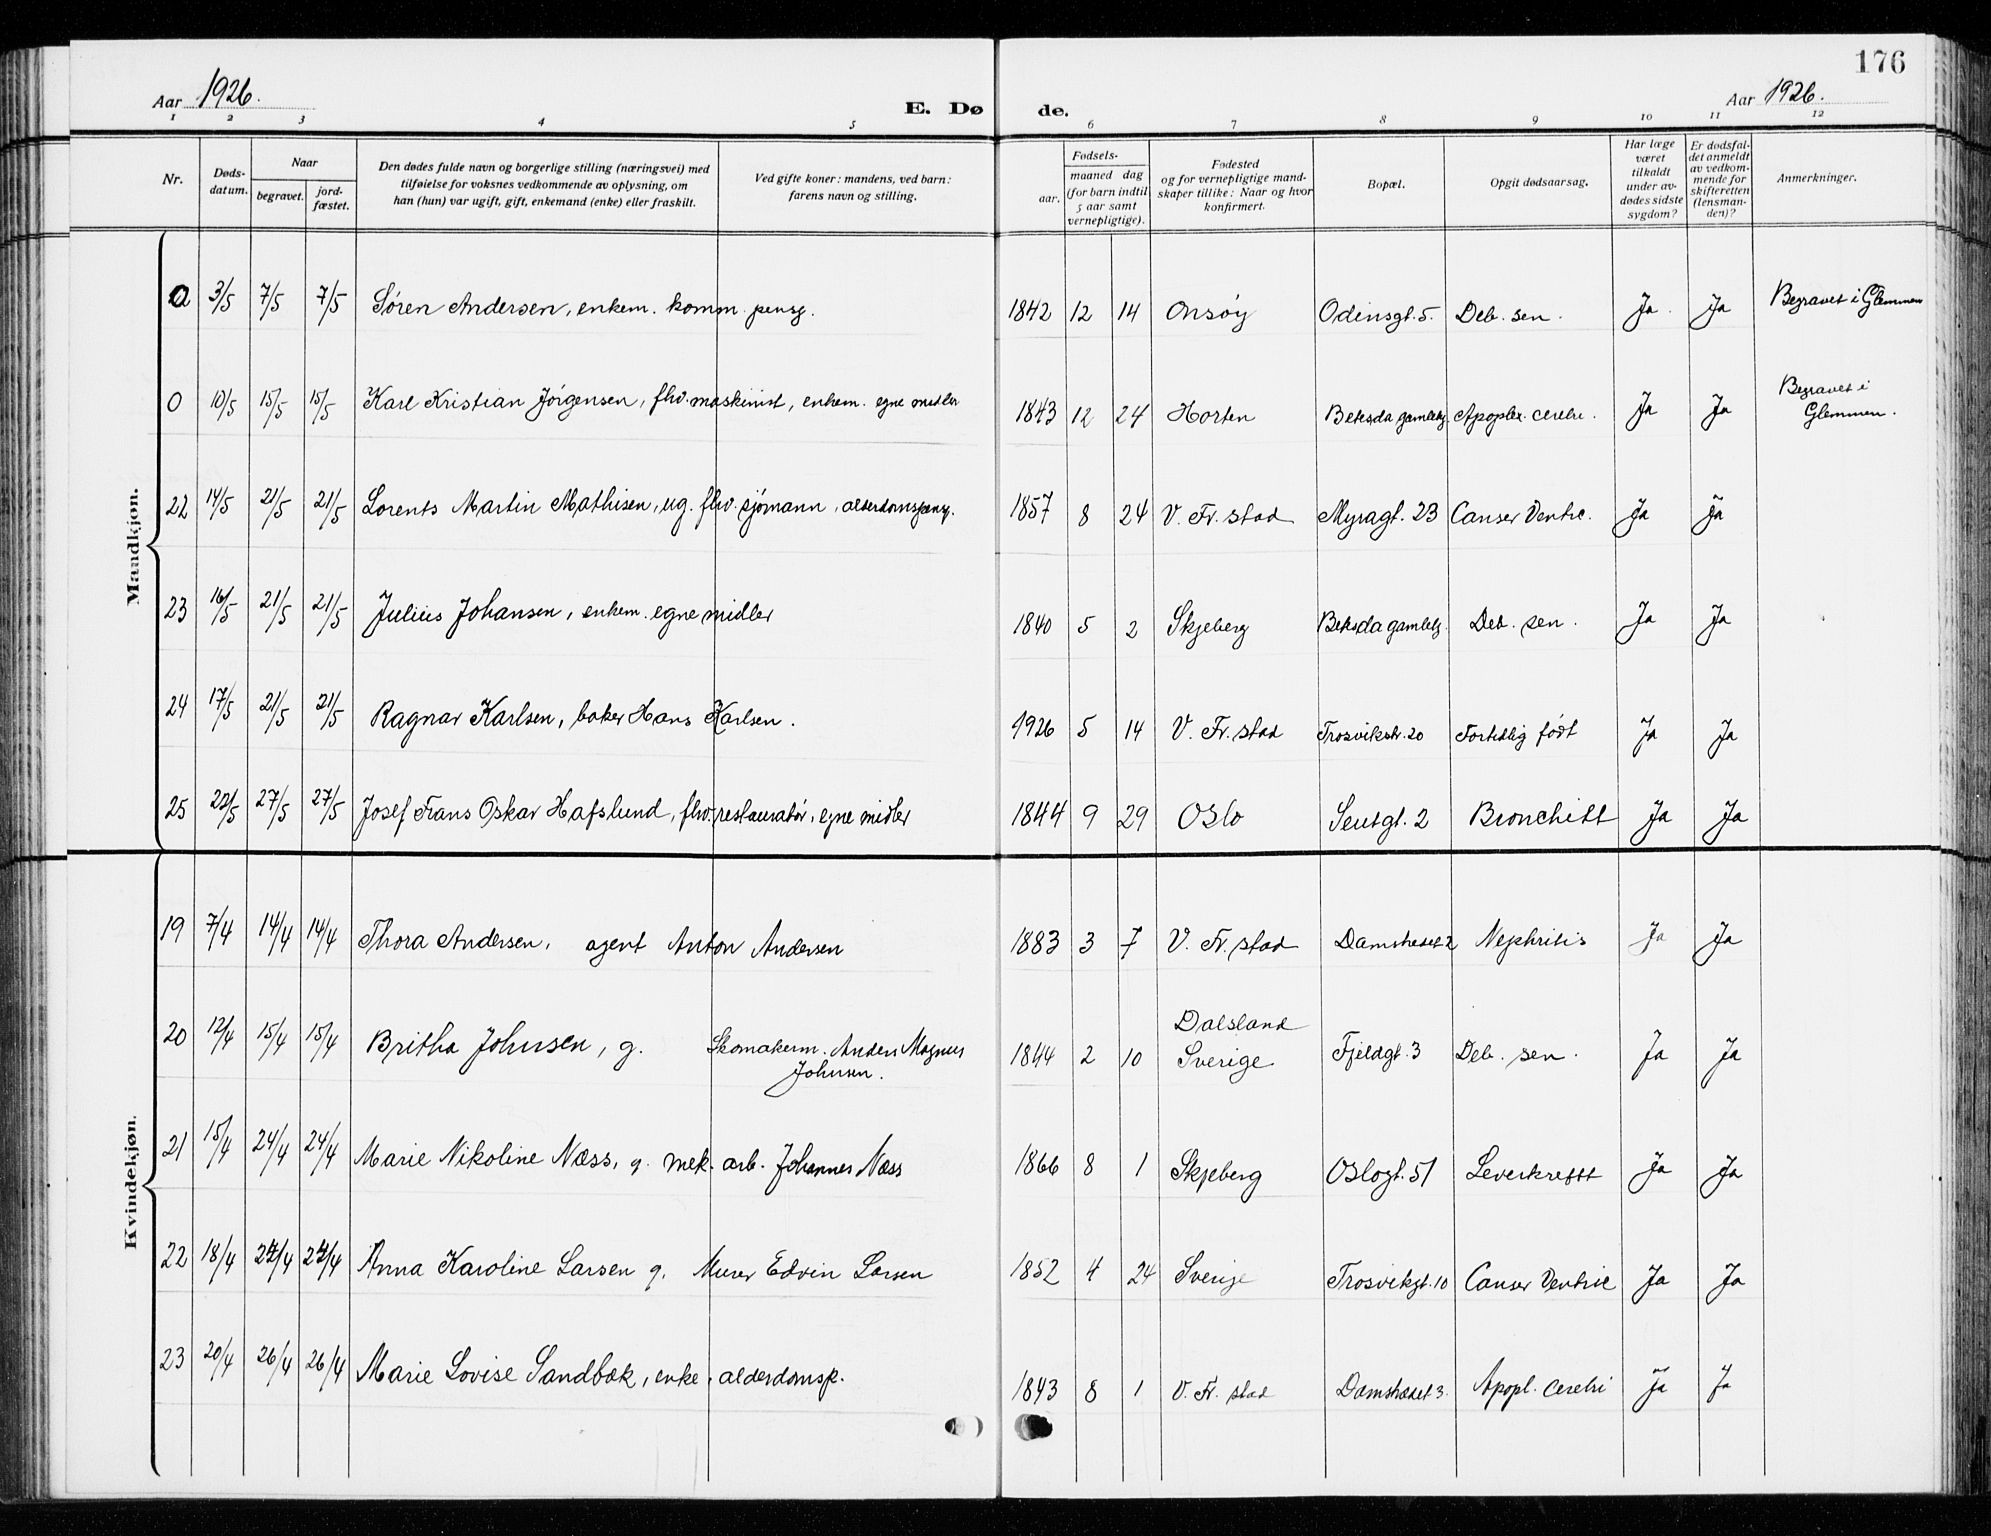 176
Aar 1926.
E. Døde.
Aar 1926.
1 2 3 4 5 6 7 8 9 10 11 12
Nr.
Døds-
datum.
Naar
begravet.
jord-
fæstet.
Den dødes fulde navn og borgerlige stilling (næringsvei) med
tilføielse for voksnes vedkommende av oplysning, om
han (hun) var ugift, gift, enkemand (enke) eller fraskilt.
Ved gifte koner: mandens, ved barn:
farens navn og stilling.
Fødsels-
aar.
maaned dag
(for barn indtil
5 aar samt
vernepligtige).
Fødested
og for vernepligtige mand-
skaper tillike: Naar og hvor
konfirmert.
Bopæl.
Opgit dødsaarsag.
Har læge
været
tilkaldt
under av-
dødes sidste
sygdom?
Er dødsfal-
det anmeldt
av vedkom-
mende for
skifteretten
(lensman-
den)?
Anmerkninger.
Mandkjøn.
0 3/5 7/5 7/5 Søren Andersen, enkem. komm. pensj. 1842 12 14 Onsøy Odinsgt. 5. Deb. sen. Ja. Ja Begravet i Glemmen
0 10/5 15/5 15/5 Karl Kristian Jörgensen, fhv. maskinist, enkem. egne midler 1843 12 24 Horten Betesda gamlehj. Apoplex. cerebr. Ja Ja Begravet i
Glemmen.
22 14/5 21/5 21/5 Lorents Martin Mathisen, ug. fhv. sjömann, alderdomspensj. 1857 8 24 V. Fr. stad Myragt. 23 Canser Ventric. Ja Ja
23 16/5 21/5 21/5 Julius Johansen, enkem. egne midler 1840 5 2 Skjeberg Betesda gamlehj. Deb. sen. Ja Ja
24 17/5 21/5 21/5 Ragnar Karlsen, baker Hans Karlsen. 1926 5 14 V. Fr. stad Trosvikstr. 20 Fortidlig födt Ja Ja
25 22/5 27/5 27/5 Josef Frans Oskar Hafslund, fhv. restauratör, egne midler 1844 9 29 Oslo Seutgt. 2 Bronchitt Ja Ja
Kvindekjøn.
19 7/4 14/4 14/4 Thora Andersen, agent Anton Andersen 1883 3 7 V. Fr. stad Damstredet 2 Nephritis Ja Ja
20 12/4 15/4 15/4 Britha Johnsen, g. Skomakerm. Anders Magnus
Johnsen. 1844 2 10 Dalsland
Sverige Fjeldgt. 3 Deb. sen. Ja Ja
21 15/4 24/4 24/4 Marie Nikoline Næss, g. mek. arb. Johannes Næss 1866 8 1 Skjeberg Oslogt. 51 Leverkreftt Ja Ja
22 18/4 24/4 24/4 Anna Karoline Larsen g. Murer Edvin Larsen 1852 4 24 Sverige Trosvikgt. 10 Canser Ventric Ja Ja
23 20/4 26/4 26/4 Marie Lovise Sandbæk, enke, alderdomsp. 1843 8 1 V. Fr. stad Damstredet 3. Apopl. cerebri Ja Ja